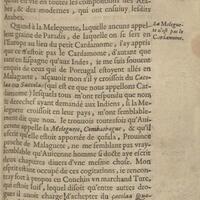 qu'on en vie en toutes les compositions des Ara-
bes, & des modernes, qui ont ensuivy lesdits
Arabes.
Quand à la Meleguette, laquelle aucuns appel-
lent graine de Paradis, de laquelle on se sert en
Europe au lieu du petit Cardamome, i'ay appris
que ce n'estoit pas le Cardamome, d'autant que
nantes Espagne qu'aux Indes, ie me suis souuent
enquis de ceux qui de Portugal estoyent allés en
Malaguete, assauoir mon s'il y croissoit du Caco-
laa ou Saccolaa: (qui est ce que nous appellons Car-
damome) lesquels tous m'ont respondu que
derechef ayant demandé aux Indiens, si la Me-
leguete croissoit en leur pays, ne m'ont point
dit que non. Ie trouuois toutesfois qu'Aui-
cenne appelle la Meleguete, Combazbague, & qu'il
escrit qu'elle estoit apportée de çofala, Prouince
proche de Malaguete, ne me semblant pas vray-
semblable qu'Auicenne homme si docte aye escrit
deux chapitres diuers d'une mesme chose. Mon
esprit estant occupé de ces cogitations, ie rencon-
tray bien à propos en Cochin vn marchand Turc,
qui estoit Iuif, lequel disoit qu'entre autres dro-
gues il auoit charge d'achepter du cacolaa
La Melegue-
te n'est pas le
Cardamome.